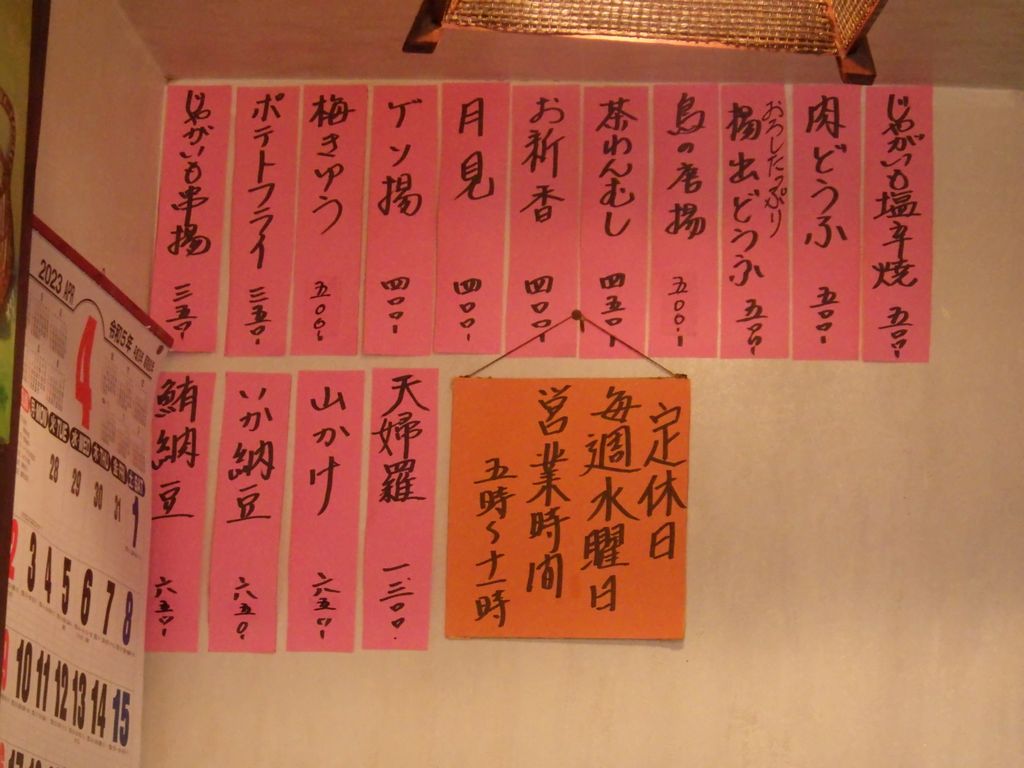 じゃがいも塩辛焼 五〇〇
肉どうふ 五〇〇
おろしたっぷり
揚出どうふ 五五〇
鳥の唐揚 五〇〇
茶わんむし 四五〇
お新香 四〇〇
月見 四〇〇
ゲソ揚 四〇〇
梅きゅう 五〇〇
ポテトフライ 三五〇
じゃがいも串揚 三五〇
天婦羅 一、三〇〇
山かけ 六五〇
いか納豆 六五〇
鮪納豆 六五〇
定休日
毎週水曜日
営業時間
五時〜十一時
2023 APR
令和5年
4
TUE WED
28 29 30 31 1
2 3 4 5 6 7 8
9 10 11 12 13 14 15